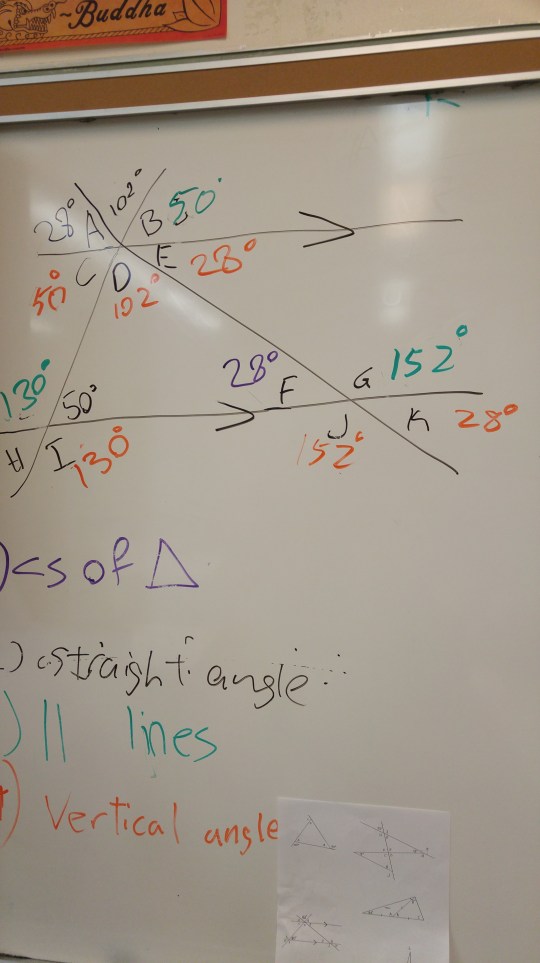 ~Buddha
102°
28° A B 50°
50° C D E 28°
102°
130° 50° 28° F G 152°
H I 130° 152° J K 28°
)<s of △
.) straight angle
) || lines
) Vertical angle